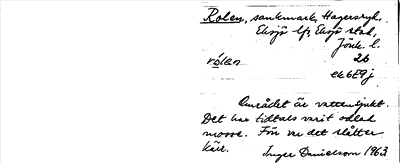 Rolen, sankmark, Hagersryd,
Eksjö lfs, Eksjö stad,
Jönk. l.
rólen 26
ek6E9j
Området är vattensjukt.
Det har tidtals varit odlad
mosse. Förr var det slåtter
kärr.
Inger Danielsson 1963